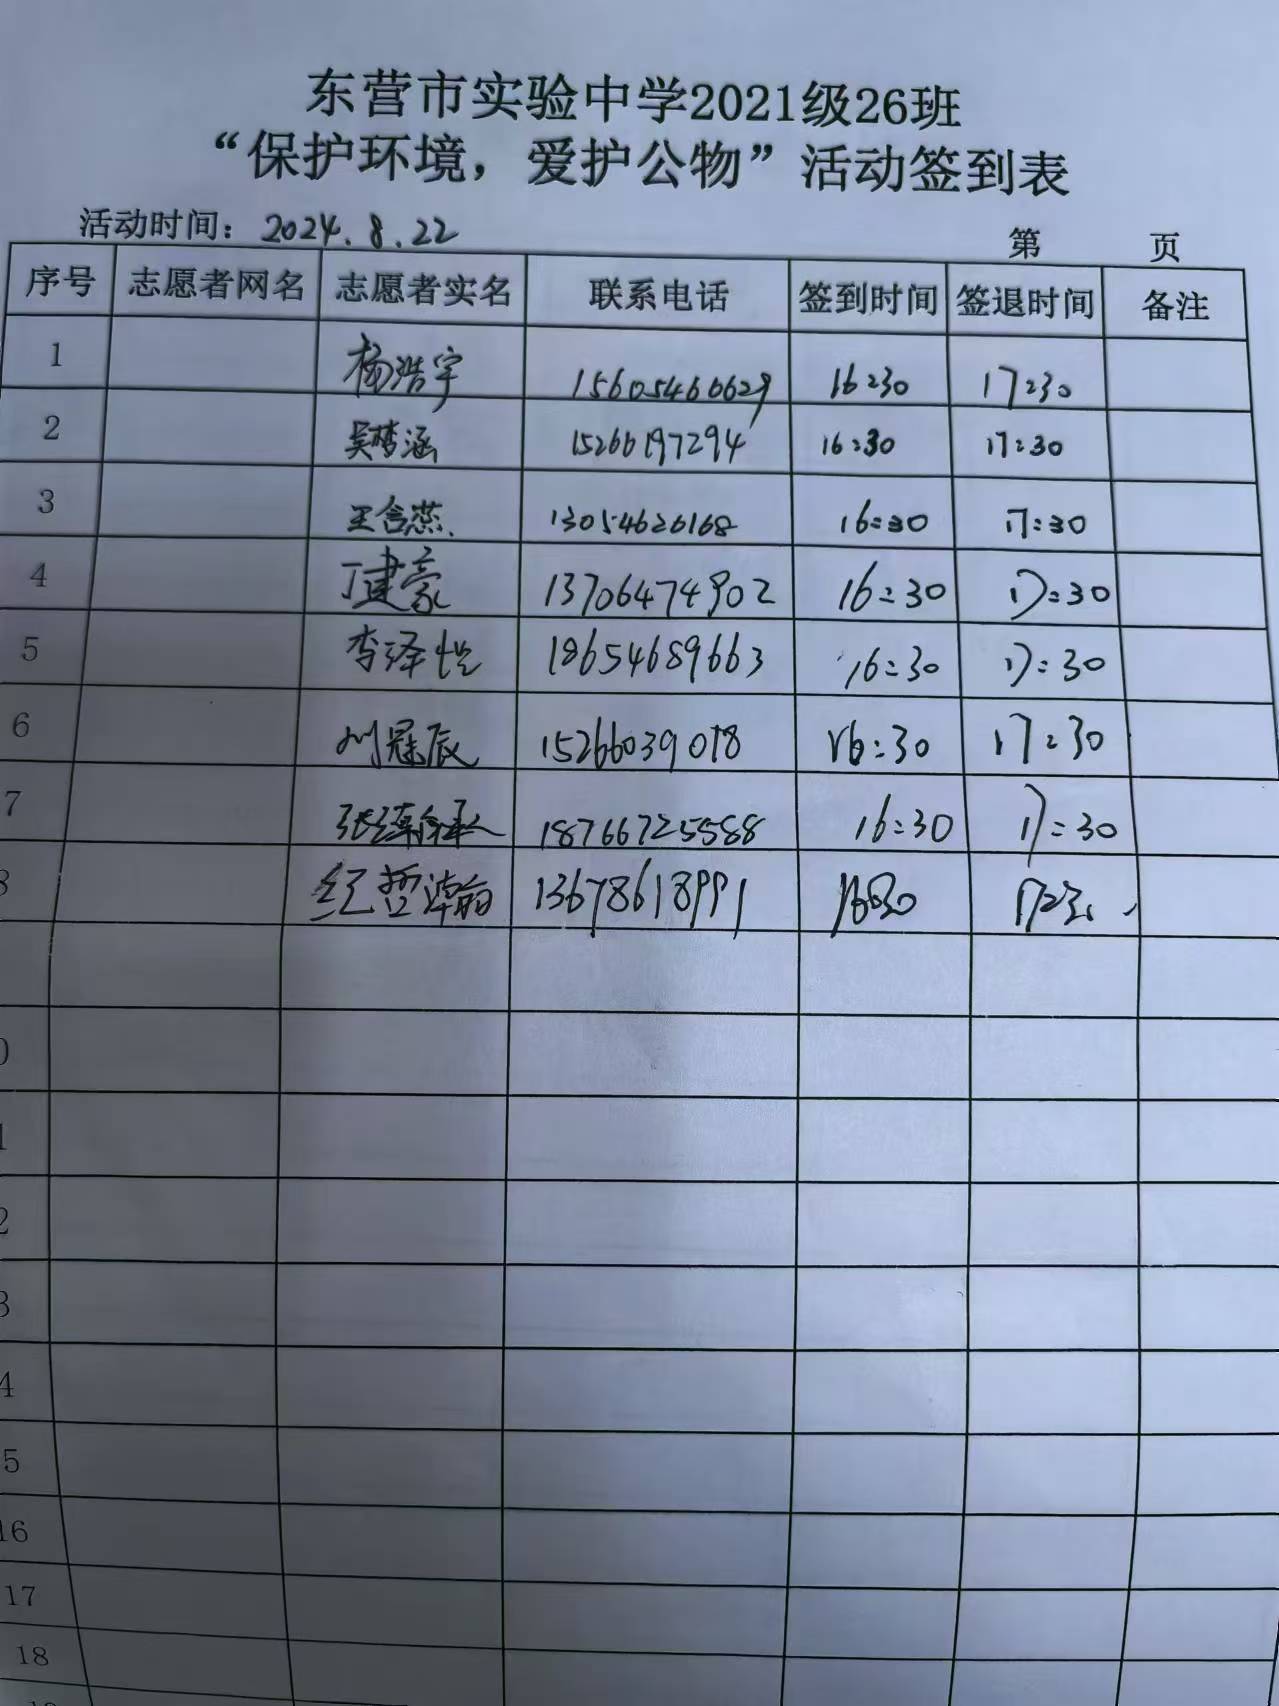 东营市实验中学2021级26班
“保护环境，爱护公物”活动签到表
活动时间：2024.8.22 第 页
序号 志愿者网名 志愿者实名 联系电话 签到时间 签退时间 备注
1 杨浩宇 15605460629 16:30 17:30
2 吴梦涵 15266197294 16:30 17:30
3 王含燕 13054626168 16:30 17:30
4 丁建豪 13706474902 16:30 17:30
5 李泽恺 18654689663 16:30 17:30
6 刘冠辰 15266039018 16:30 17:30
7 张 18766725588 16:30 17:30
8 纪哲瀚 13678618991 16:30 17:30
0
1
2
3
4
5
16
17
18